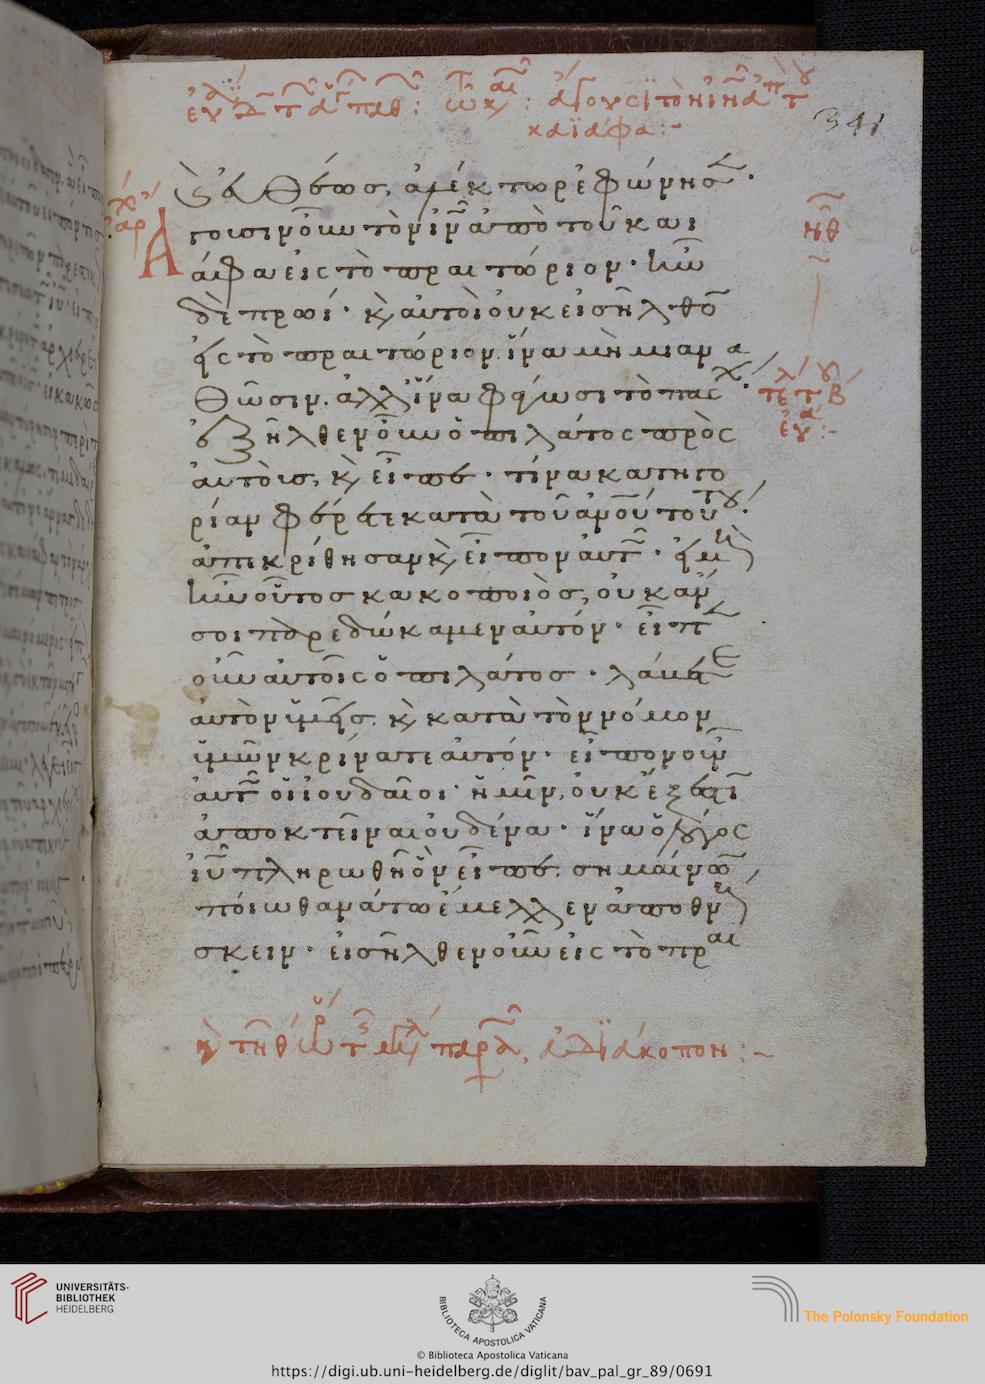 341
καϊάφα:-
εὐθέως, ἀλέκτωρ ἐφώνησ.
Ἄγουσιν οὖν τὸν ἰν ἀπὸ τοῦ καϊ
άφα εἰς τὸ πραιτώριον. ἦν
δὲ πρωί. κ αὐτοὶ οὐκ εἰσῆλθο
εἰς τὸ πραιτώριον. ἵνα μὴ μιαν
θῶσιν. ἀλλ' ἵνα φάγωσι τὸ πασχ.
ἐξῆλθεν οὖν ὁ πιλάτος πρὸς
αὐτοὺς, κ εἶπε. τίνα κατηγο
ρίαν φέρετε κατὰ τοῦ ἀνου τούτου.
ἀπεκρίθησαν κ εἶπον αὐτῶ. εἰ μὴ
ἦν οὗτος κακοποιὸς, οὐκ ἄν
σοι παρεδώκαμεν αὐτόν. εἶπεν
οὖν αὐτοῖς ὁ πιλάτος. λάβετε
αὐτὸν ὑμεῖς. κ κατὰ τὸν νόμον
ὑμῶν κρίνατε αὐτόν. εἶπον οὖν
αὐτῶ οἱ ἰουδαῖοι. ἡμῖν, οὐκ ἔξεστι
ἀποκτεῖναι οὐδένα. ἵνα ὁ λόγος
ἰυ πληρωθῆ ὃν εἶπε. σημαίνων
ποίω θανάτω ἔμελλεν ἀποθνή
σκειν. εἰσῆλθεν οὖν εἰς τὸ πραι
UNIVERSITÄTS-
BIBLIOTHEK
HEIDELBERG
BIBLIOTECA APOSTOLICA VATICANA
The Polonsky Foundation
© Biblioteca Apostolica Vaticana
https://digi.ub.uni-heidelberg.de/diglit/bav_pal_gr_89/0691